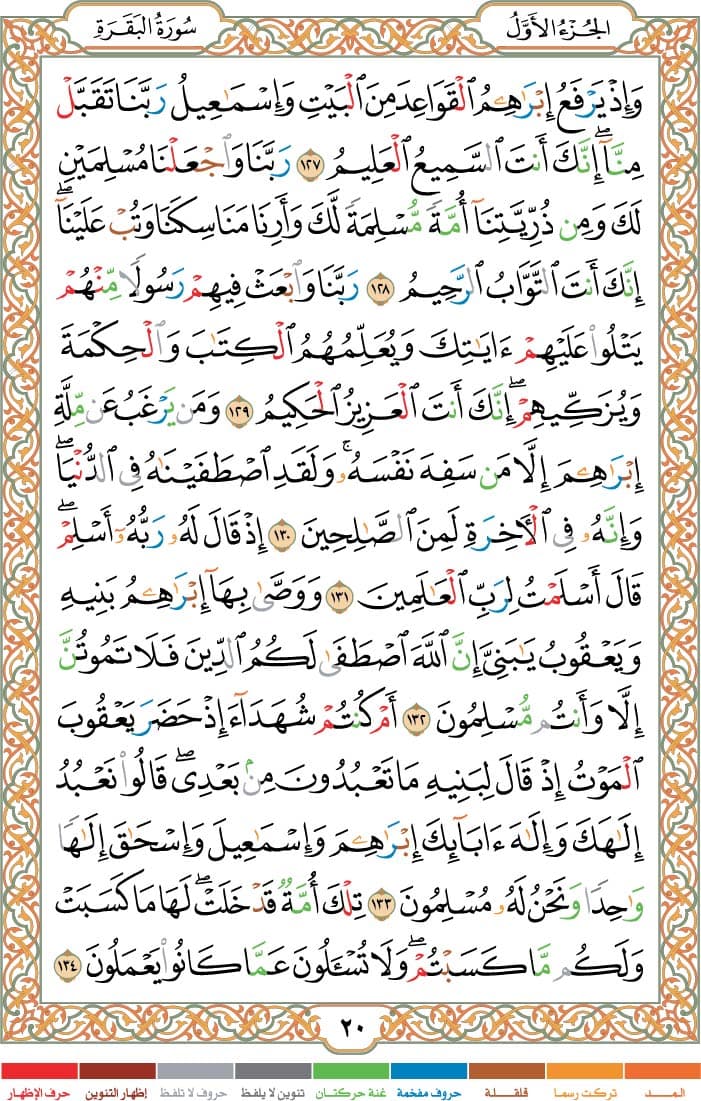 الجُزْءُ الأَوَّلُ
سُورَةُ البَقَرَةِ
وَإِذْ يَرْفَعُ إِبْرَٰهِـۧمُ ٱلْقَوَاعِدَ مِنَ ٱلْبَيْتِ وَإِسْمَـٰعِيلُ رَبَّنَا تَقَبَّلْ
مِنَّآ ۖ إِنَّكَ أَنتَ ٱلسَّمِيعُ ٱلْعَلِيمُ ١٢٧ رَبَّنَا وَٱجْعَلْنَا مُسْلِمَيْنِ
لَكَ وَمِن ذُرِّيَّتِنَآ أُمَّةً مُّسْلِمَةً لَّكَ وَأَرِنَا مَنَاسِكَنَا وَتُبْ عَلَيْنَآ ۖ
إِنَّكَ أَنتَ ٱلتَّوَّابُ ٱلرَّحِيمُ ١٢٨ رَبَّنَا وَٱبْعَثْ فِيهِمْ رَسُولًا مِّنْهُمْ
يَتْلُوا۟ عَلَيْهِمْ ءَايَـٰتِكَ وَيُعَلِّمُهُمُ ٱلْكِتَـٰبَ وَٱلْحِكْمَةَ
وَيُزَكِّيهِمْ ۖ إِنَّكَ أَنتَ ٱلْعَزِيزُ ٱلْحَكِيمُ ١٢٩ وَمَن يَرْغَبُ عَن مِّلَّةِ
إِبْرَٰهِـۧمَ إِلَّا مَن سَفِهَ نَفْسَهُۥ ۚ وَلَقَدِ ٱصْطَفَيْنَـٰهُ فِى ٱلدُّنْيَا ۖ
وَإِنَّهُۥ فِى ٱلْـَٔاخِرَةِ لَمِنَ ٱلصَّـٰلِحِينَ ١٣٠ إِذْ قَالَ لَهُۥ رَبُّهُۥٓ أَسْلِمْ ۖ
قَالَ أَسْلَمْتُ لِرَبِّ ٱلْعَـٰلَمِينَ ١٣١ وَوَصَّىٰ بِهَآ إِبْرَٰهِـۧمُ بَنِيهِ
وَيَعْقُوبُ يَـٰبَنِىَّ إِنَّ ٱللَّهَ ٱصْطَفَىٰ لَكُمُ ٱلدِّينَ فَلَا تَمُوتُنَّ
إِلَّا وَأَنتُم مُّسْلِمُونَ ١٣٢ أَمْ كُنتُمْ شُهَدَآءَ إِذْ حَضَرَ يَعْقُوبَ
ٱلْمَوْتُ إِذْ قَالَ لِبَنِيهِ مَا تَعْبُدُونَ مِنۢ بَعْدِى ۖ قَالُوا۟ نَعْبُدُ
إِلَـٰهَكَ وَإِلَـٰهَ ءَابَآئِكَ إِبْرَٰهِـۧمَ وَإِسْمَـٰعِيلَ وَإِسْحَـٰقَ إِلَـٰهًا
وَٰحِدًا وَنَحْنُ لَهُۥ مُسْلِمُونَ ١٣٣ تِلْكَ أُمَّةٌ قَدْ خَلَتْ ۖ لَهَا مَا كَسَبَتْ
وَلَكُم مَّا كَسَبْتُمْ ۖ وَلَا تُسْـَٔلُونَ عَمَّا كَانُوا۟ يَعْمَلُونَ ١٣٤
٢٠
المـــد
تركت رسما
قلقـلة
حروف مفخمة
غنة حركتان
تنوين لا يلفظ
حروف لا تلفظ
إظهار التنوين
حرف الإظهار